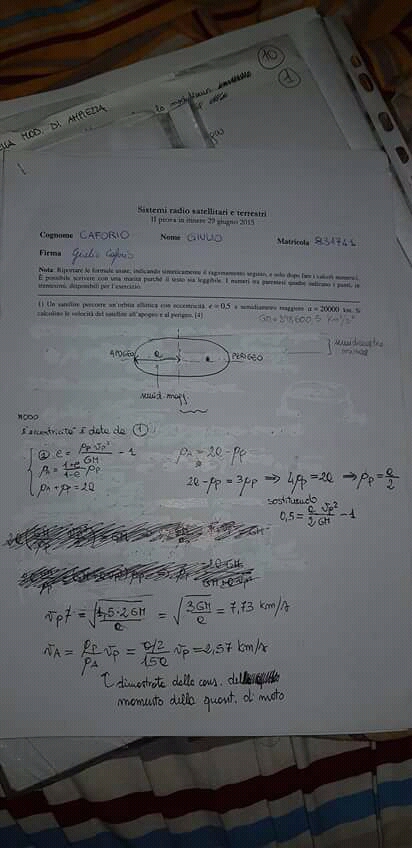 10
1
ELLA MOD. DI AMPIEZZA
Sistemi radio satellitari e terrestri
II prova in itinere 29 giugno 2015
Cognome CAFORIO Nome GIULIO Matricola 831741
Firma Giulio Caforio
Nota: Riportare le formule usate, indicando sinteticamente il ragionamento seguito, e solo dopo fare i calcoli numerici.
È possibile scrivere con una matita purché il testo sia leggibile. I numeri tra parentesi quadre indicano i punti, in
trentesimi, disponibili per l'esercizio.
1) Un satellite percorre un'orbita ellittica con eccentricità e = 0,5 e semidiametro maggiore a = 20000 km. Si
calcolino le velocità del satellite all'apogeo e al perigeo. [4]
GM=398600,5 Km³/s²
APOGEO a PERIGEO
semidiametro
minore
semid. magg.
MODO
L'eccentricità è data da 1
e = ρp vp²/GM - 1
ρA = 1+e/1-e ρp
ρA + ρp = 2a
ρA = 2a - ρp
2a - ρp = 3ρp ⇒ 4ρp = 2a ⇒ ρp = a/2
sostituendo
0,5 = a vp²/2 GM - 1
vp = √1,5·2GM/a = √3GM/a = 7,73 km/s
vA = ρp/ρA vp = a/2/1,5a vp = 2,57 km/s
dimostrata dalla cons. del
momento della quant. di moto